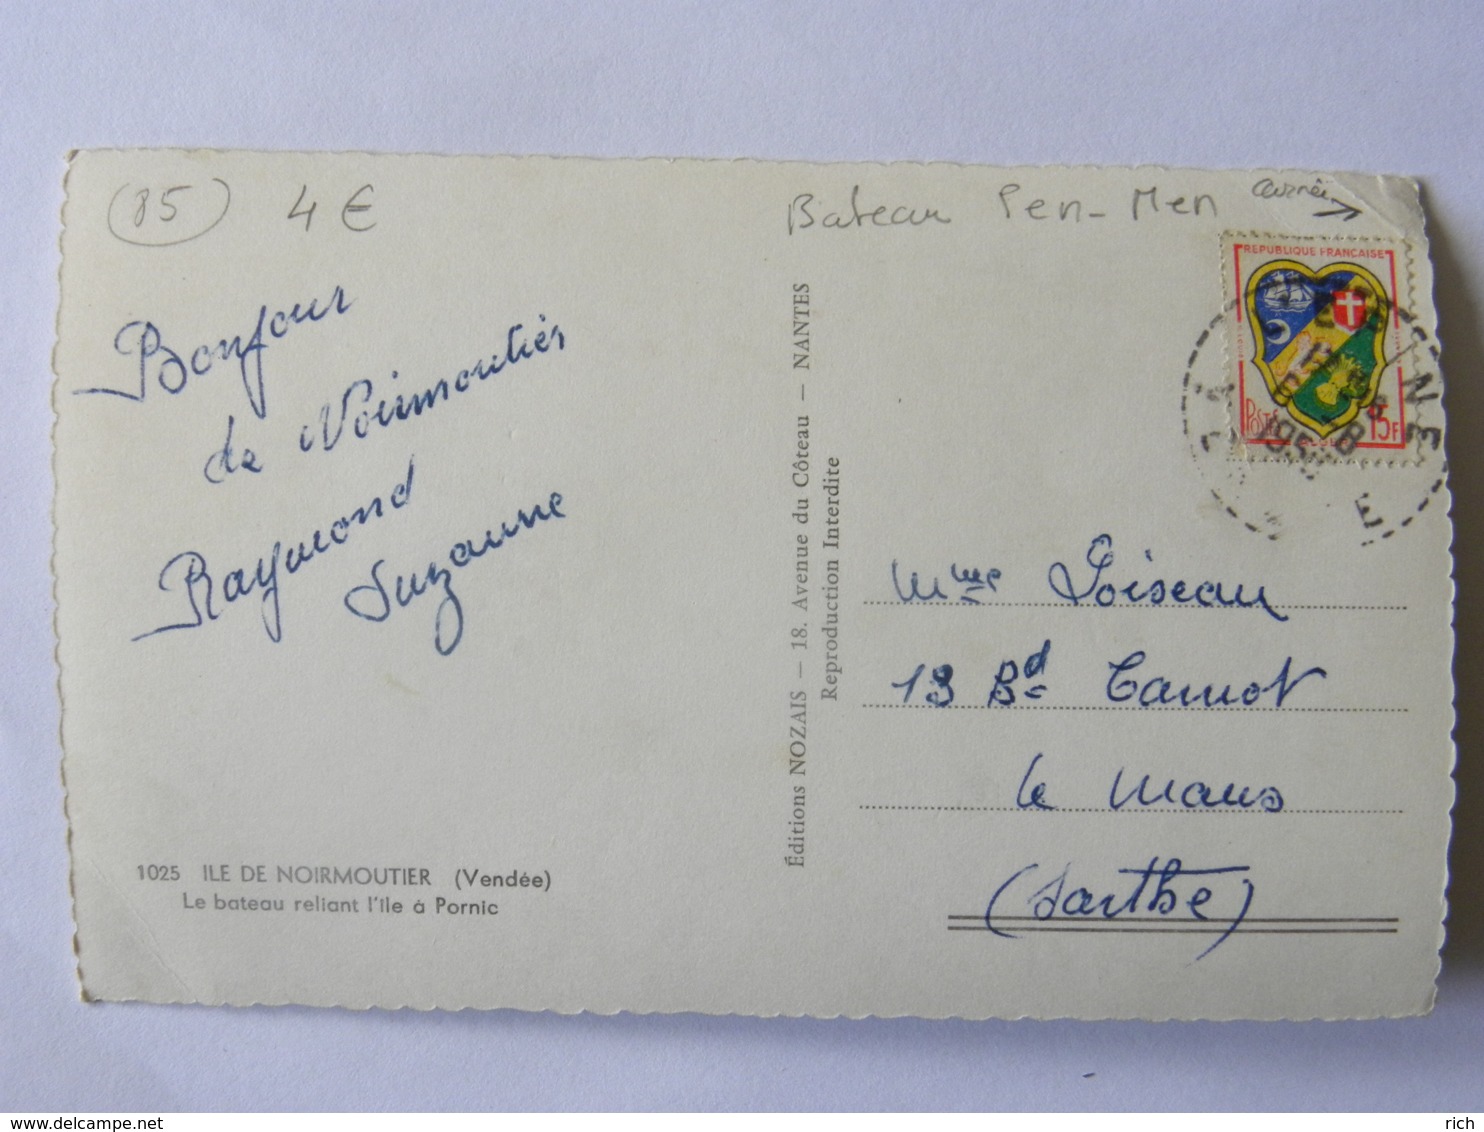 (85) 4€
Bateau Pen-Men
cornée
Bonjour
de Noirmoutier
Raymond
Suzanne
1025 ILE DE NOIRMOUTIER (Vendée)
Le bateau reliant l'île à Pornic
Éditions NOZAIS — 18. Avenue du Côteau — NANTES
Reproduction Interdite
REPUBLIQUE FRANÇAISE
POSTES
15F
Mme Loiseau
13 Bd Carnot
le Mans
(Sarthe)
www.delcampe.net
rich